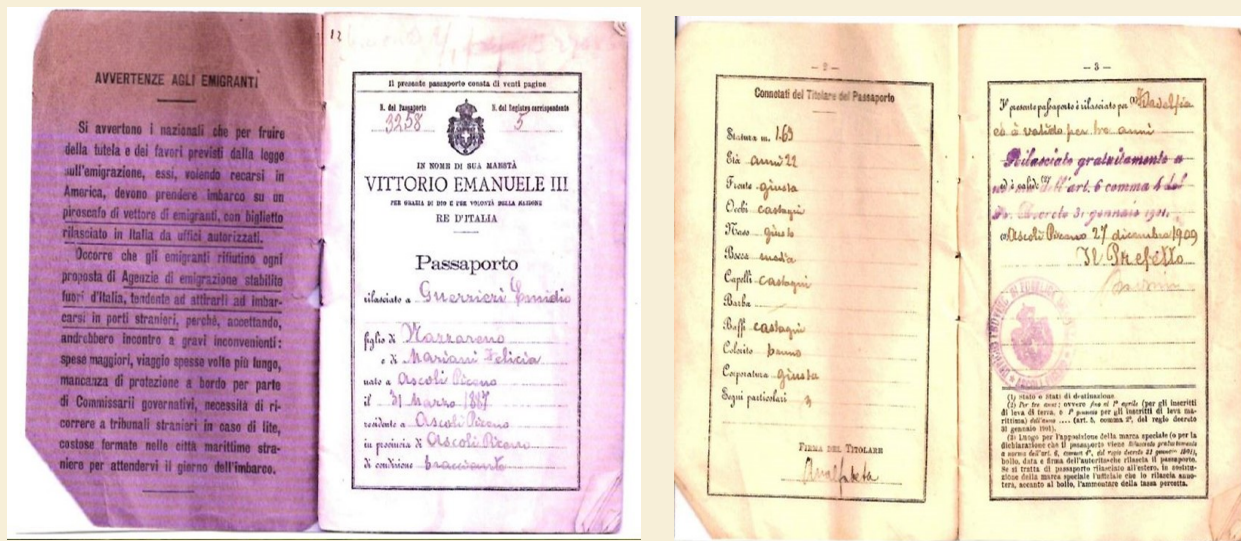 AVVERTENZE AGLI EMIGRANTI
Si avvertono i nazionali che per fruire
della tutela e dei favori previsti dalla legge
sull'emigrazione, essi, volendo recarsi in
America, devono prendere imbarco su un
piroscafo di vettore di emigranti, con biglietto
rilasciato in Italia da uffici autorizzati.
Occorre che gli emigranti rifiutino ogni
proposta di Agenzie di emigrazione stabilite
fuori d'Italia, tendente ad attirarli ad imbar-
carsi in porti stranieri, perchè, accettando,
andrebbero incontro a gravi inconvenienti:
spese maggiori, viaggio spesse volte più lungo,
mancanza di protezione a bordo per parte
di Commissarii governativi, necessità di ri-
correre a tribunali stranieri in caso di lite,
costose fermate nelle città marittime stra-
niere per attendervi il giorno dell'imbarco.
12
Il presente passaporto consta di venti pagine
N. del Passaporto
3258
N. del Registro corrispondente
5
IN NOME DI SUA MAESTÀ
VITTORIO EMANUELE III
PER GRAZIA DI DIO E PER VOLONTÀ DELLA NAZIONE
RE D'ITALIA
Passaporto
rilasciato a Guerrieri Emidio
figlio di Nazzareno
e di Mariani Felicia
nato a Ascoli Piceno
il 31 Marzo 1887
residente a Ascoli Piceno
in provincia di Ascoli Piceno
di condizione bracciante
- 2 -
Connotati del Titolare del Passaporto
Statura m. 1.63
Età anni 22
Fronte giusta
Occhi castagni
Naso giusto
Bocca media
Capelli castagni
Barba
Baffi castagni
Colorito bruno
Corporatura giusta
Segni particolari
FIRMA DEL TITOLARE
Analfabeta
- 3 -
Il presente passaporto è rilasciato per (1) Filadelfia
ed è valido per tre anni
Rilasciato gratuitamente a
dell'art. 6 comma 4 del
R. Decreto 31 gennaio 1901.
(3) Ascoli Piceno 27 dicembre 1909
Il Prefetto
(1) Stato o Stati di destinazione.
(2) Per tre anni; ovvero fino al 1º aprile (per gli inscritti
di leva di terra, o 1º gennaio per gli inscritti di leva ma-
rittima) dell'anno .... (art. 5, comma 2º, del regio decreto
31 gennaio 1901).
(3) Luogo per l'apposizione della marca speciale (o per la
dichiarazione che il passaporto viene Rilasciato gratuitamente
a norma dell'art. 6, comma 4º, del regio decreto 31 gennaio 1901),
bollo, data e firma dell'autorità che rilascia il passaporto.
Se si tratta di passaporto rilasciato all'estero, in sostitu-
zione della marca speciale l'ufficiale che lo rilascia anno-
terà, accanto al bollo, l'ammontare della tassa percetta.